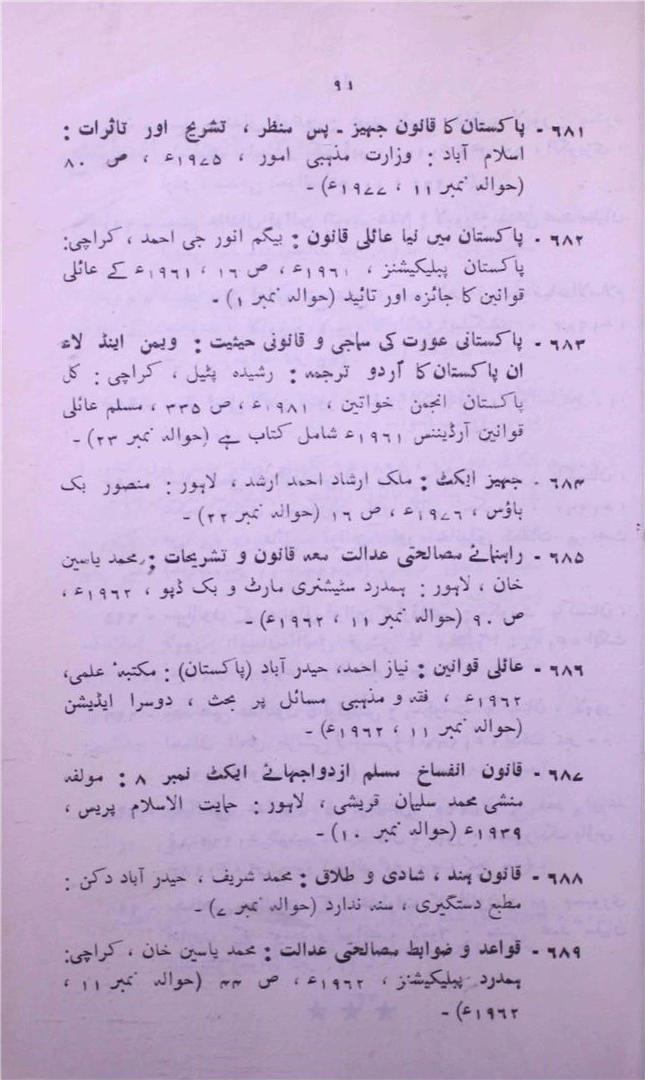 ۹۱
۶۸۱ - پاکستان کا قانون جہیز - پس منظر ، تشریح اور تاثرات :
اسلام آباد : وزارت مذہبی امور ، ۱۹۷۵ء ، ص ۸۰
(حوالہ نمبر ۱۱ ، ۱۹۷۷ء) -
۶۸۲ - پاکستان میں نیا عائلی قانون : بیگم انور جی احمد ، کراچی:
پاکستان پبلیکیشنز ، ۱۹۶۱ء ، ص ۱۶ ، ۱۹۶۱ء کے عائلی
قوانین کا جائزہ اور تائید (حوالہ نمبر ۱) -
۶۸۳ - پاکستانی عورت کی سماجی و قانونی حیثیت : ویمن اینڈ لاء
ان پاکستان کا اردو ترجمہ : رشیدہ پٹیل ، کراچی : کل
پاکستان انجمن خواتین ، ۱۹۸۱ء ، ص ۳۳۵ ، مسلم عائلی
قوانین آرڈیننس ۱۹۶۱ء شامل کتاب ہے (حوالہ نمبر ۲۳) -
۶۸۴ - جہیز ایکٹ : ملک ارشاد احمد ارشد ، لاہور : منصور بک
ہاؤس ، ۱۹۷۶ء ، ص ۱۶ (حوالہ نمبر ۲۲) -
۶۸۵ - راہنمائے مصالحتی عدالت معہ قانون و تشریحات : محمد یاسین
خان ، لاہور : ہمدرد سٹیشنری مارٹ و بک ڈپو ، ۱۹۶۲ء ،
ص ۹۰ (حوالہ نمبر ۱۱ ، ۱۹۶۲ء) -
۶۸۶ - عائلی قوانین : نیاز احمد، حیدر آباد (پاکستان) : مکتبۂ علمی،
۱۹۶۲ء ، فقہ و مذہبی مسائل پر بحث ، دوسرا ایڈیشن
(حوالہ نمبر ۱۱ ، ۱۹۶۲ء) -
۶۸۷ - قانون انفساخ مسلم ازدواجہائے ایکٹ نمبر ۸ : مولفہ
منشی محمد سلیمان قریشی ، لاہور : حمایت الاسلام پریس ،
۱۹۳۹ء (حوالہ نمبر ۱۰) -
۶۸۸ - قانون ہند ، شادی و طلاق : محمد شریف ، حیدر آباد دکن :
مطبع دستگیری ، سنہ ندارد (حوالہ نمبر ۷) -
۶۸۹ - قواعد و ضوابط مصالحتی عدالت : محمد یاسین خان ، کراچی:
ہمدرد پبلیکیشنز ، ۱۹۶۲ء ، ص ۴۴ (حوالہ نمبر ۱۱ ،
۱۹۶۲ء) -